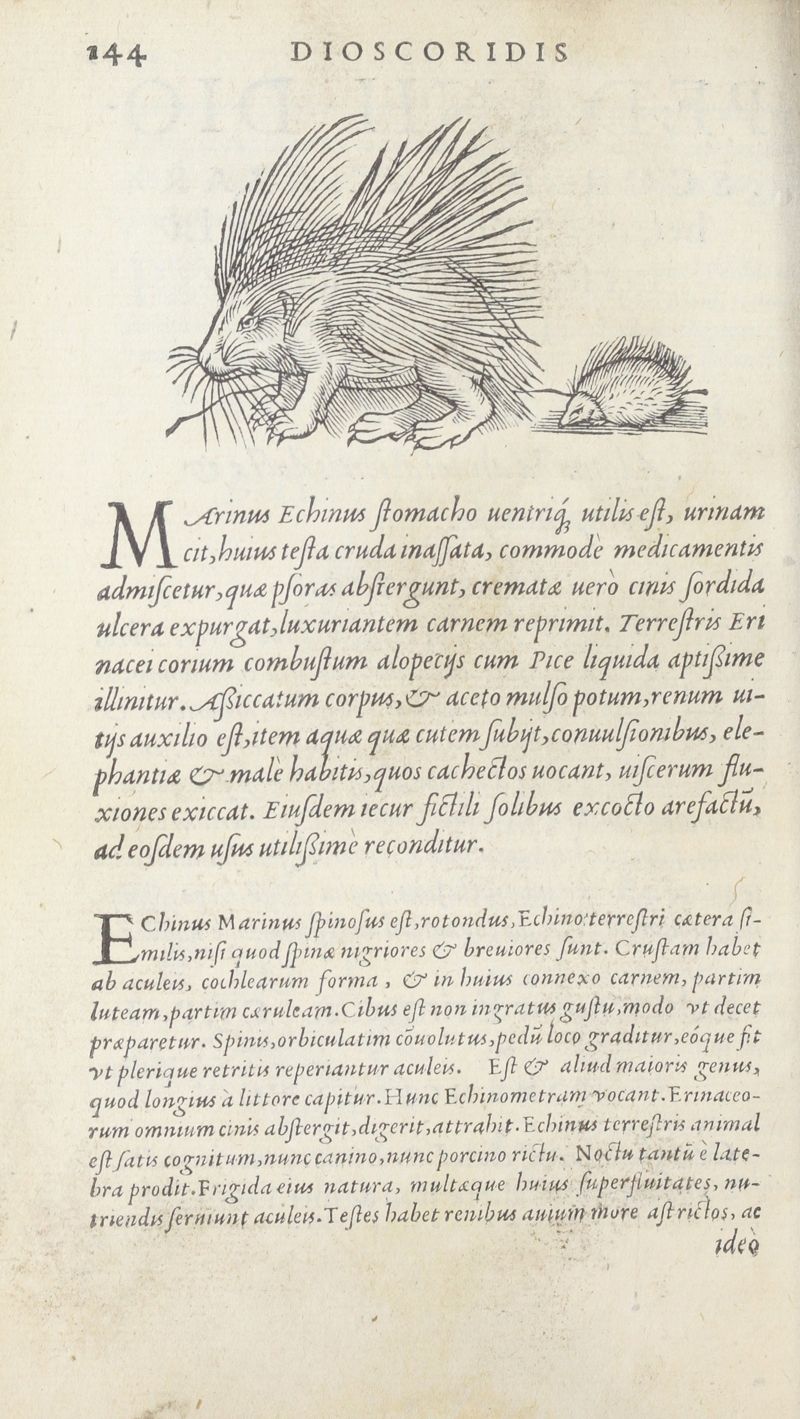 144 DIOSCORIDIS
MArinus Echinus ſtomacho uentriq́; utilis eſt, urinam
cit, huius teſta cruda inaſſata, commodè medicamentis
admiſcetur, quæ pſoras abſtergunt, crematæ uerò cinis ſordida
ulcera expurgat, luxuriantem carnem reprimit. Terreſtris Eri
nacei corium combuſtum alopecijs cum Pice liquida aptißime
illinitur. Aßiccatum corpus, & aceto mulſo potum, renum ui-
tijs auxilio eſt, item aquæ quæ cutem ſubijt, conuulſionibus, ele-
phantiæ & malè habitis, quos cachectos uocant, uiſcerum flu-
xiones exiccat. Eiuſdem iecur fictili ſolibus excocto arefactū,
ad eoſdem uſus utilißimè reconditur.
EChinus Marinus ſpinoſus eſt, rotondus, Echino terreſtri cætera ſi-
milis, niſi quod ſpinæ nigriores & breuiores ſunt. Cruſtam habet
ab aculeis, cochlearum forma, & in huius connexo carnem, partim
luteam, partim cæruleam. Cibus eſt non ingratus guſtu, modo vt decet
præparetur. Spinis, orbiculatim cōuolutus, pedū loco graditur, eóque fit
vt plerique retritis reperiantur aculeis. Eſt & aliud maioris genus,
quod longius à littore capitur. Hunc Echinometram vocant. Erinaceo-
rum omnium cinis abſtergit, digerit, attrahit. Echinus terreſtris animal
eſt ſatis cognitum, nunc canino, nunc porcino rictu. Noctu tantū è late-
bra prodit. Frigida eius natura, multæque huius ſuperfluitates, nu-
triendis ſeruiunt aculeis. Teſtes habet renibus auium more aſtrictos, ac
ideò